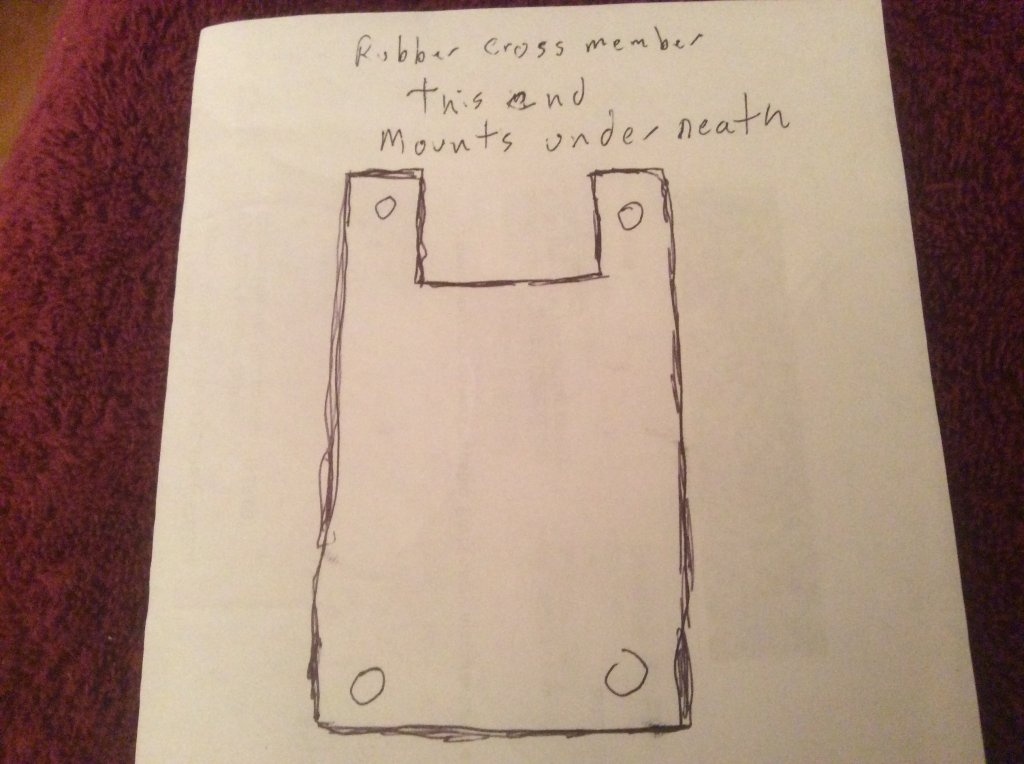 Rubber cross member
This end
Mounts underneath